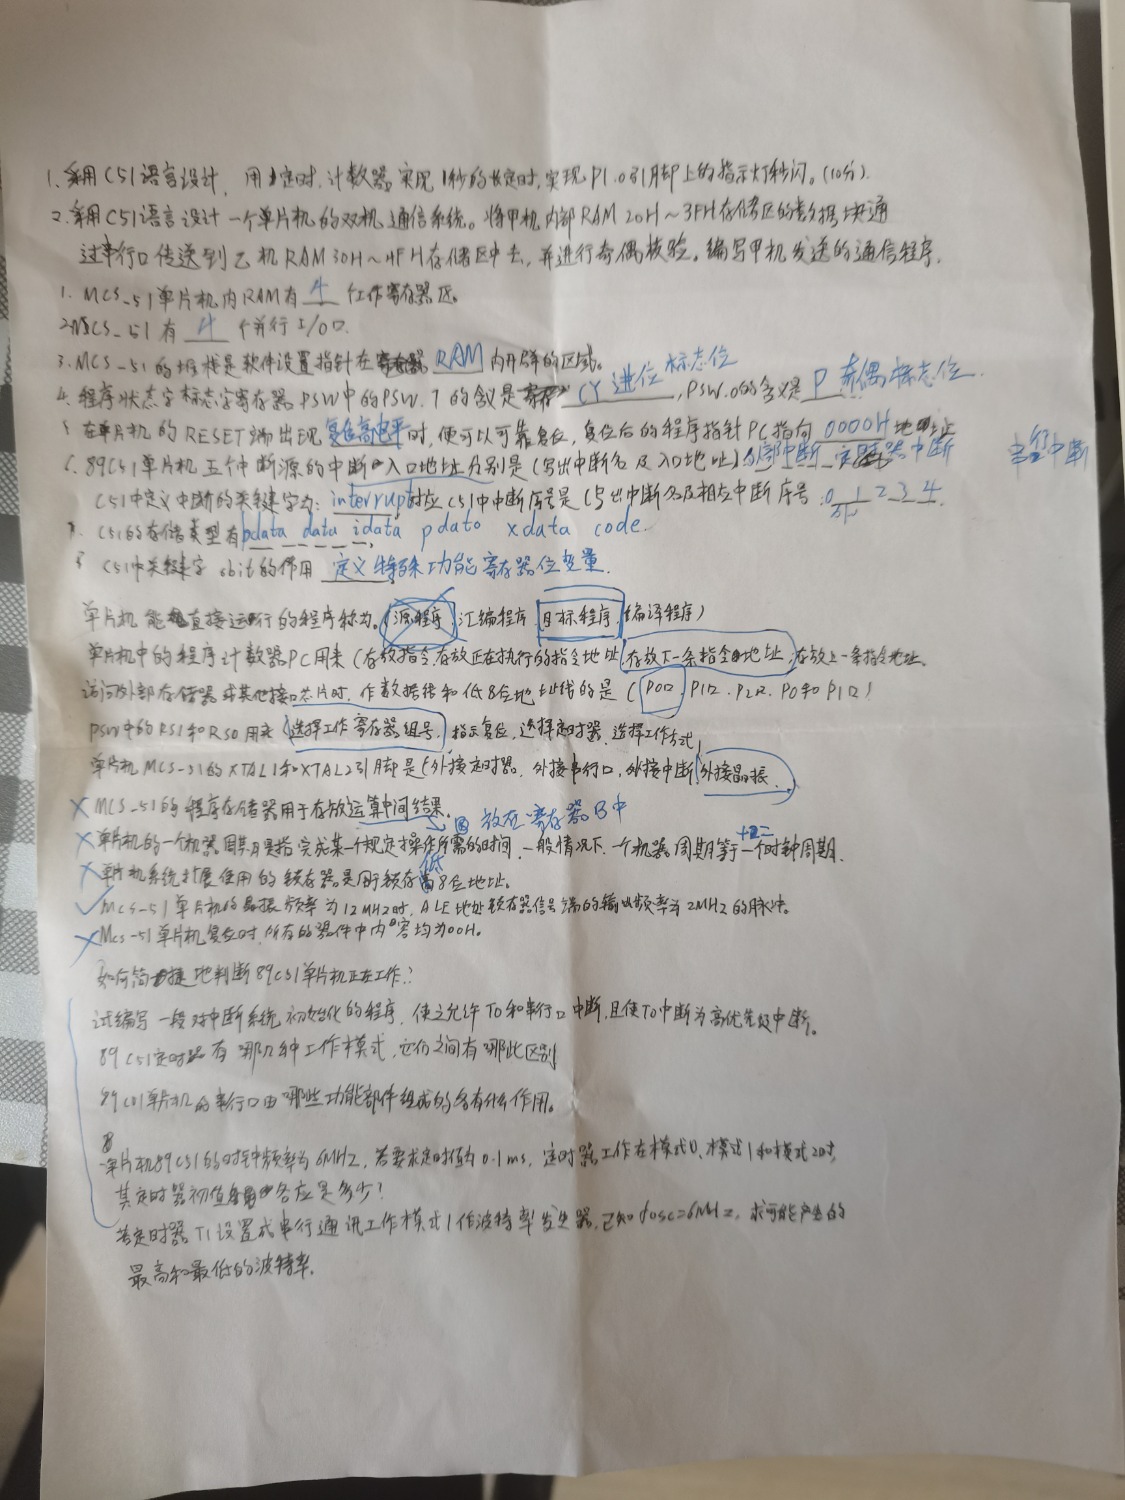 1. 采用C51语言设计, 用1定时.计数器实现1秒的长定时,实现P1.0引脚上的指示灯秒闪。(10分).
2. 采用C51语言设计一个单片机的双机通信系统。将甲机内部RAM 20H~3FH存储区的数据块通
过串行口传送到乙机RAM 30H~4FH存储区中去,并进行奇偶校验。编写甲机发送的通信程序.
1. MCS-51单片机内RAM有 4 个工作寄存器区。
2. MCS-51有 4 个并行I/O口.
3. MCS-51的堆栈是软件设置指针在 RAM 内开辟的区域。
4. 程序状态字标志字寄存器PSW中的PSW.7的含义是 CY 进位标志位, PSW.0的含义是 P 奇偶标志位.
5 在单片机的RESET端出现 高电平时,便可以可靠复位,复位后的程序指针PC指向 0000H 地址
6. 89C51单片机五个中断源的中断入口地址分别是(写出中断名及入口地址) 外部中断 定时器中断 中断
C51中定义中断的关键字为: interrupt 对应C51中中断序号是(写出中断名及相应中断序号: 0 1 2 3 4.
7. C51的存储类型有 bdata data idata pdata xdata code.
8 C51中关键字 sbit的作用 定义特殊功能寄存器位变量.
单片机能直接运行的程序称为。(源程序,汇编程序,目标程序,编译程序)
单片机中的程序计数器PC用来(存放指令,存放正在执行的指令地址,存放下一条指令地址,存放上一条指令地址.
访问外部存储器或其他接口芯片时.作数据线和低8位地址线的是(P0口,P1口.P2口.P0和P1口)
PSW中的RS1和RS0用来(选择工作寄存器组号.指示复位,选择定时器.选择工作方式)
单片机MCS-51的XTAL1和XTAL2引脚是(外接定时器.外接串行口,外接中断,外接晶振.
× MCS-51的程序存储器用于存放运算中间结果。
放在寄存器B中
× 单片机的一个机器周期是指完成某一个规定操作所需的时间,一般情况下.一个机器周期等于一个时钟周期. 十二
× 单片机系统扩展使用的锁存器是用于锁存低8位地址。
✓ MCS-51单片机的晶振频率为12MHZ时,ALE地址锁存器信号端的输出频率为2MHZ的脉冲。
× MCS-51单片机复位时,所有的器件中内容均为00H。
如何简捷地判断89C51单片机正在工作?
试编写一段对中断系统初始化的程序,使之允许T0和串行口中断,且使T0中断为高优先级中断。
89C51定时器有哪几种工作模式,它们之间有哪些区别
89C51单片机的串行口由哪些功能部件组成的各有什么作用。
单片机89C51的时钟频率为6MHZ,若要求定时值为0.1ms,定时器工作在模式0、模式1和模式2时,
其定时器初值各应是多少?
若定时器T1设置成串行通讯工作模式1作波特率发生器,已知fosc=6MHz,求可能产生的
最高和最低的波特率.